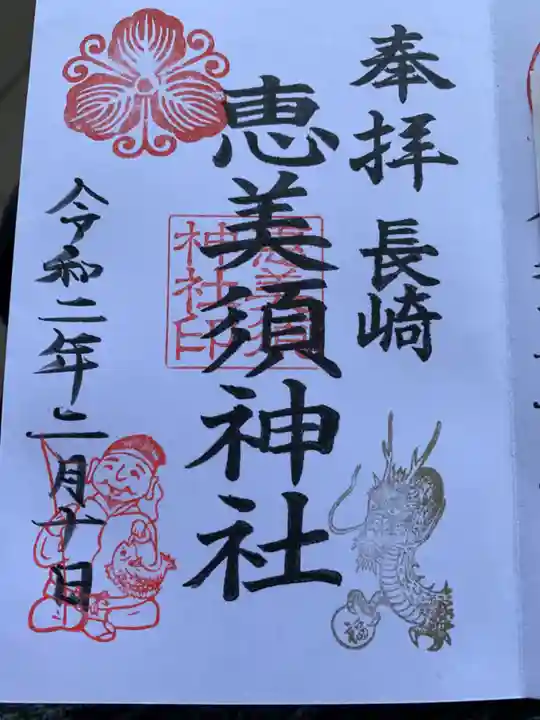 奉拝 長崎
恵美須神社
恵美須
神社印
令和二年二月十日
福